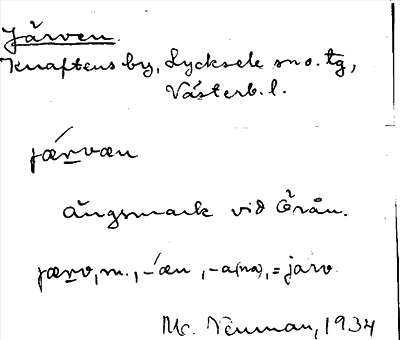 Järven.
Knaftens by, Lycksele sn o. tg,
Västerb. l.
jærvæn
ängsmark vid Örån.
jærv, m., -æn, -a(na), = järv.
Neuman, 1934